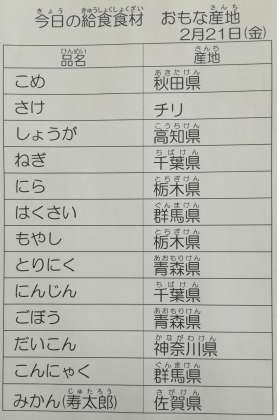 今日の給食食材　おもな産地
2月21日(金)
品名 産地
こめ 秋田県
さけ チリ
しょうが 高知県
ねぎ 千葉県
にら 栃木県
はくさい 群馬県
もやし 栃木県
とりにく 青森県
にんじん 千葉県
ごぼう 青森県
だいこん 神奈川県
こんにゃく 群馬県
みかん(寿太郎) 佐賀県